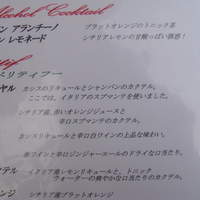 lcohol Cocktail
ン アランチーノ　ブラッドオレンジのトニック系
ン レモネード　シチリアレモンの甘酸っぱい誘惑！
tif
ペリティーフ
ヤル　カシスのリキュールとシャンパンのカクテル。
ここでは、イタリアのスプマンテを使いました。
シチリア産、赤いオレンジジュースと
辛口スプマンテのカクテル。
カシスリキュールと辛口白ワインの上品な味わい。
赤ワインと辛口ジンジャーエールのドライな口当たり。
テル　イタリア産リキュールと、トニック
ウォーターの爽やかな口当たりのカクテル。
ンジ　シチリア産ブラッドオレンジ